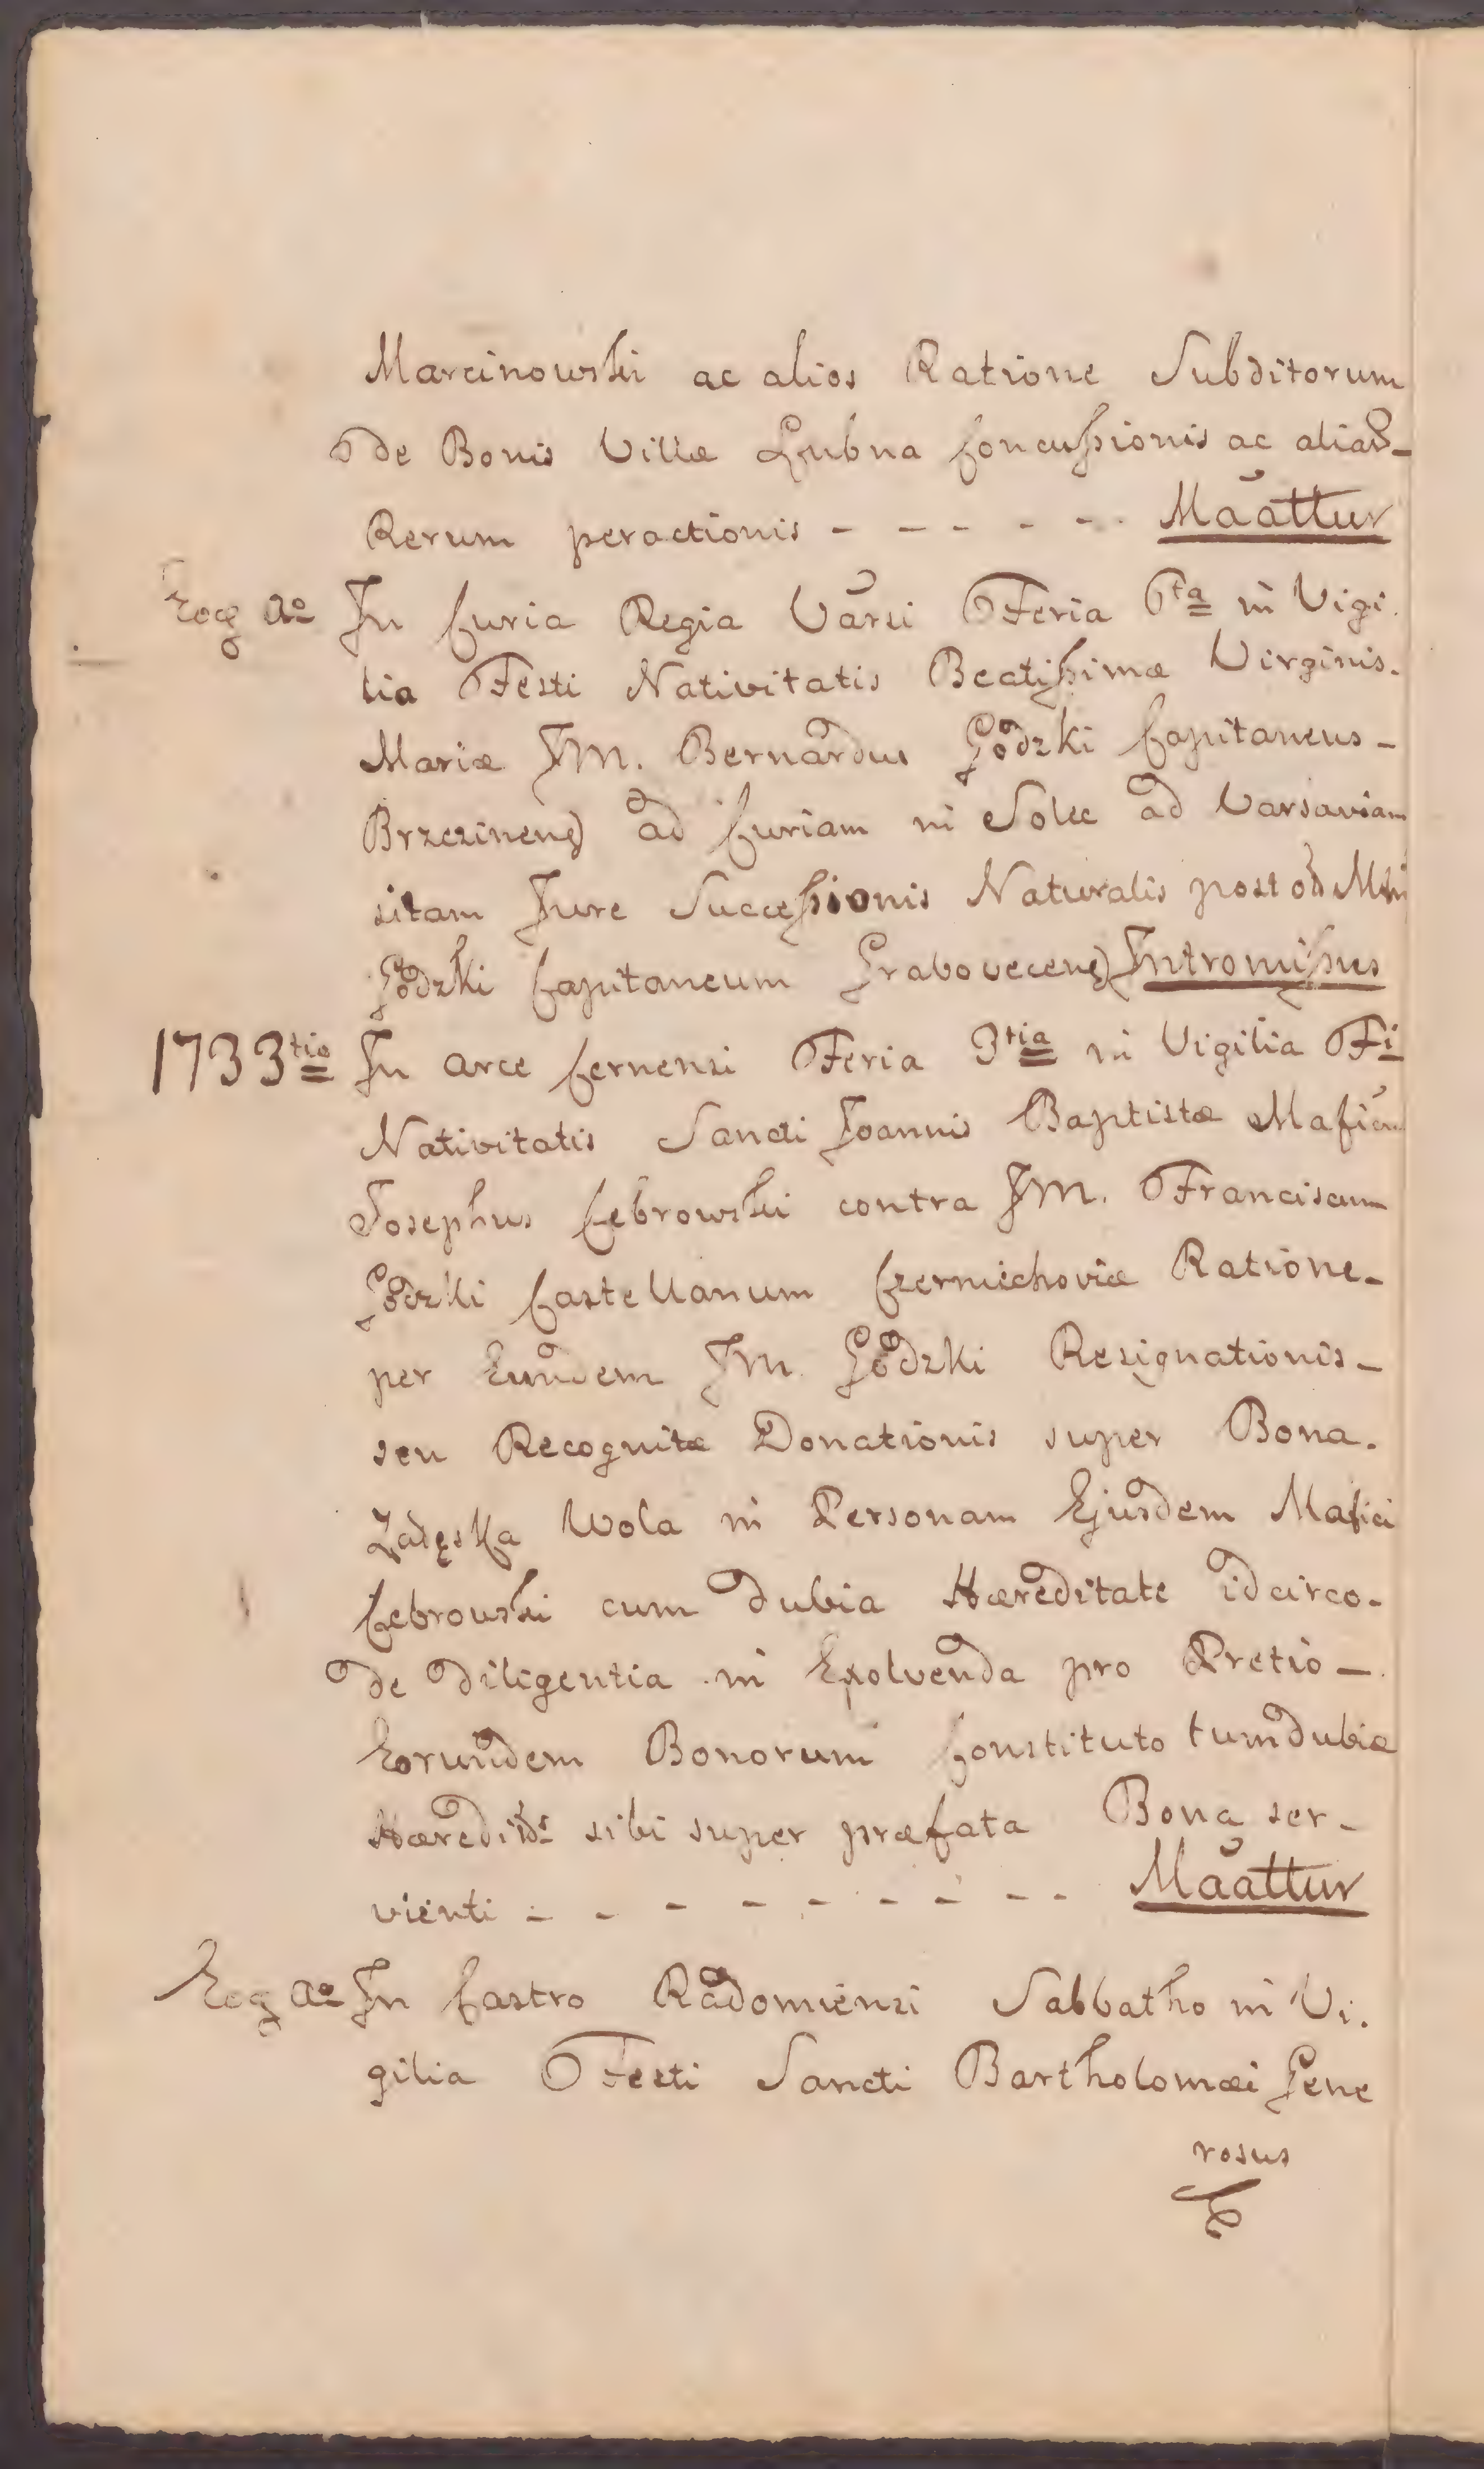 Marcinowski ac alios Ratione Subditorum
de Bonis Villæ Łubna Concussionis ac aliar̃
Rerum peractionis - - - - - - Maattur
Eoq̃ Ao In Curia Regia Varsi Feria 6ta in Vigi
lia Festi Nativitatis Beatissimæ Virginis.
Mariæ JM. Bernardus Gozdzki Capitaneus -
Brzezinens ad Curiam in Solec ad Varsaviam
sitam Jure Successionis Naturalis post
Gozdzki Capitaneum Grabovecens Intromissus
1733tio In arce Cernensi Feria 3tia in Vigilia Fi
Nativitatis Sancti Joannis Baptistæ
Josephus Cebrowski contra JM. Franciscum
Gozdzki Castellanum Czerniechoviæ Ratione -
per Eundem JM. Gozdzki Resignationis -
seu Recognitæ Donationis super Bona.
Wola in Personam Ejusdem Mafici
Cebrowski cum dubia Hæreditate idcirco -
de diligentia in Exolvenda pro Pretio -
Eorundem Bonorum Constituto tum dubiæ
sibi super præfata Bona ser -
vienti - - - - - - - - Maattur
Eoq̃ Ao In Castro Radomiensi Sabbatho in Vi.
gilia Festi Sancti Bartholomæi Gene
rosus